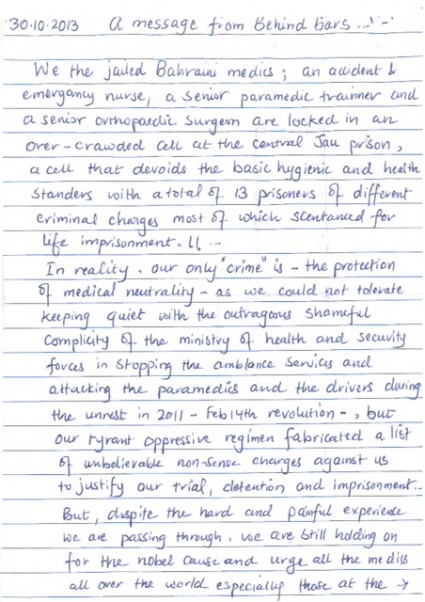 30.10.2013 A message from Behind bars...!-'
We the jailed Bahraini medics ; an accident &
emergancy nurse, a senior paramedic trainner and
a senior orthopaedic surgeon are locked in an
over-crawded cell at the central Jau prison,
a cell that devoids the basic hygienic and health
standers with a total of 13 prisoners of different
criminal charges most of which scentanced for
life imprisonment. !! ...
In reality, our only "crime" is - the protection
of medical neutrality - as we could not tolerate
keeping quiet with the outrageous shameful
complicity of the ministry of health and security
forces in stopping the amblance services and
attacking the paramedics and the drivers during
the unrest in 2011 - Feb 14th revolution -, but
our tyrant oppressive regimen fabricated a list
of unbelievable non-sense charges against us
to justify our trial, detention and imprisonment..
But, despite the hard and painful experience
we are passing through, we are still holding on
for the nobel cause and urge all the medics
all over the world especially those at the →